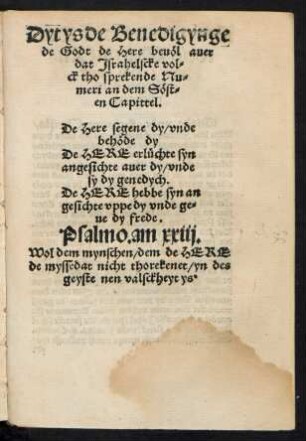 Dyt ys de Benedigynge
de Godt de Here bevöl auer
dat Israhelscke vol-
ck tho sprekende Nu-
meri an dem Söst-
en Capittel.
De Here segene dy/vnde
behöde dy
De HERE erlüchte syn
angesichte auer dy/vnde
sy dy genedych.
De HERE hebbe syn an
gesichte vppe dy vnde ge-
ue dy frede.
Psalmo. am xxiij.
Wol dem mynschen/dem de HERE
de myssedat nicht thorekenet/yn des
geyste nen valsckheyt ys.